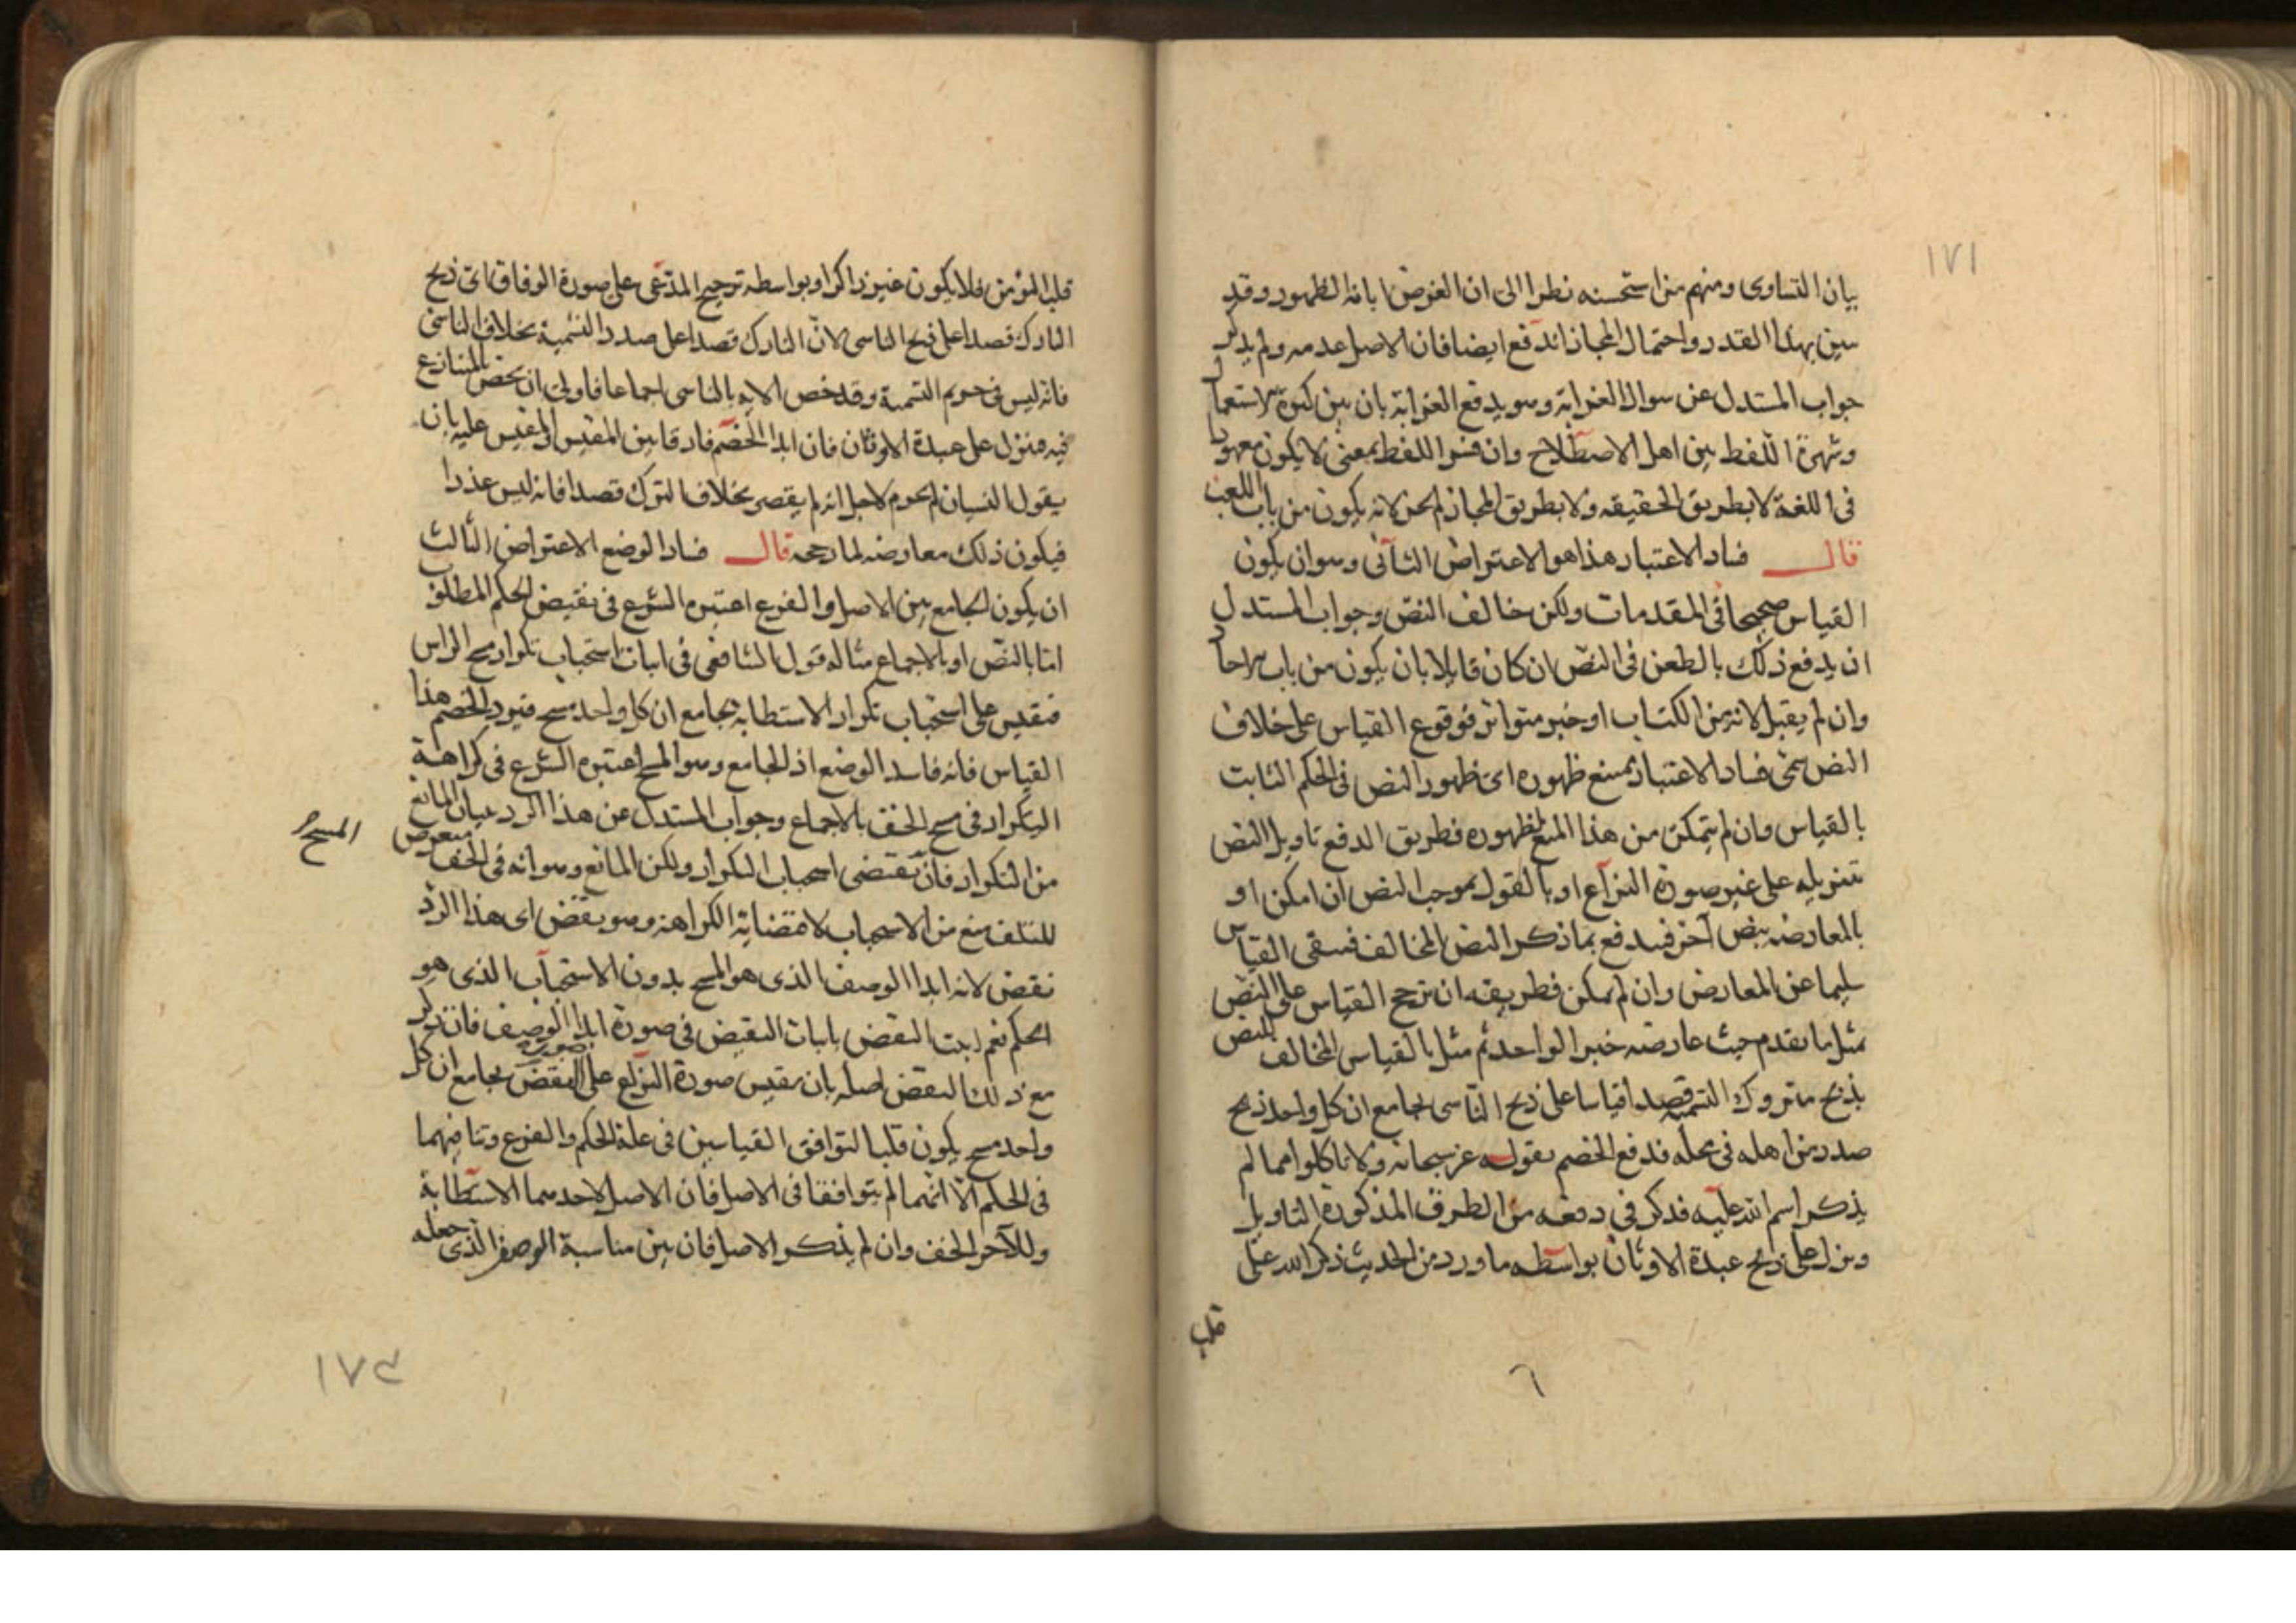 ١٧١
بيان التساوى ومنهم من استحسنه نظرا الى ان الغرض ابانة الظهور وقد
بين بهذا القدر واحتمال المجاز اندفع ايضا فان الاصل عدمه ولم يذكر
جواب المستدل عن سوال الغرابة وهو يدفع الغرابة بان بين كثرة استعمال
وشهرة اللفظ بين اهل الاصطلاح وان فسر اللفظ بمعنى لا يكون معهودا
فى اللغة لا بطريق الحقيقه ولا بطريق المجاز لم يجز لانه يكون من باب اللعب
قال فساد الاعتبار هذا هو الاعتراض الثانى وهو ان يكون
القياس صحيحا فى المقدمات ولكن خالف النص وجواب المستدل
ان يدفع ذلك بالطعن فى النص ان كان قابلا بان يكون من باب الاحاد
وان لم يقبل لانه من الكتاب او خبر متواتر فوقوع القياس على خلاف
النص سمى فساد الاعتبار بمنع ظهوره اى ظهور النص فى الحكم الثابت
بالقياس وان لم يتمكن من هذا المنع لظهوره فطريق الدفع تاويل النص
بتنزيله على غير صورة النزاع او بالقول بموجب النص ان امكن او
بالمعارضه بنص آخر فيدفع بما ذكر النص المخالف فيبقى القياس
سليما عن المعارض وان لم يمكن فطريقه ان يرجح القياس على النص
مثل ما تقدم حيث عارضه خبر الواحد ثم مثل بالقياس المخالف للنص
بذبح متروك التسمية قصدا قياسا على ذبح الناسى بجامع ان كل واحد ذبح
صدر من اهله فى محله فدفع الخصم بقوله عز سبحانه ولا تاكلوا مما لم
يذكر اسم الله عليه فذكر فى دفعه من الطرق المذكورة التاويل
ونزل على ذبح عبدة الاوثان بواسطه ما ورد من الحديث ذكر الله على
قلب
٦
قلب المؤمن فلا يكون غير ذاكر او بواسطه ترجيح المدعى على صورة الوفاق اى ذبح
التارك قصدا على ذبح الناسى لان التارك قصدا على صدد التسمية بخلاف الناسى
فانه ليس فى حريم التسمية وقد خص الايه بالناسى اجماعا فاولى ان يخص المتنازع
فيه فتنزل على عبدة الاوثان فان ابدا الخصم فارقا بين المقيس والمقيس عليه بان
يقول النسيان لم يحرم لاجل انه لم يقصر بخلاف الترك قصدا فانه ليس عذرا
فيكون ذلك معارضه لما رجحه قال فساد الوضع الاعتراض الثالث
ان يكون الجامع بين الاصل والفرع اعتبره الشرع فى نقيض الحكم المطلوب
امّا بالنص او بالاجماع مثاله قول الشافعى فى اثبات استحباب تكرار مسح الراس
فنقيس على استحباب تكرار الاستطابه بجامع ان كل واحد مسح فيورد الخصم هذا
القياس فانه فاسد الوضع اذ الجامع وهو المسح اعتبره الشرع فى كراهة
التكرار فى مسح الخف بالاجماع وجواب المستدل عن هذا الرد ببيان المانع
من التكرار فان يقتضى استحباب التكرار ولكن المانع وهو انه فى الخف متعرض
المسح
للتلف منع من الاستحباب لاقتضائه الكراهة وهو نقض اى هذا الرد
نقض لانه ابدا الوصف الذى هو المسح بدون الاستحباب الذى هو
الحكم نعم اثبت النقض باثبات النقيض فى صورة ابدا الوصف فان ذكر
مع ذلك النقض اصله بان يقيس صورة النزاع على صورة النقض بجامع ان كل
واحد مسح يكون قلبا لتوافق القياسين فى علة الحكم والفرع وتنافيهما
فى الحكم الا انهما لم يتوافقا فى الاصل فان الاصل لاحدهما الاستطابة
وللآخر الخف وان لم يذكر الاصل فان بين مناسبة الوصف الذى جعله
١٧٢